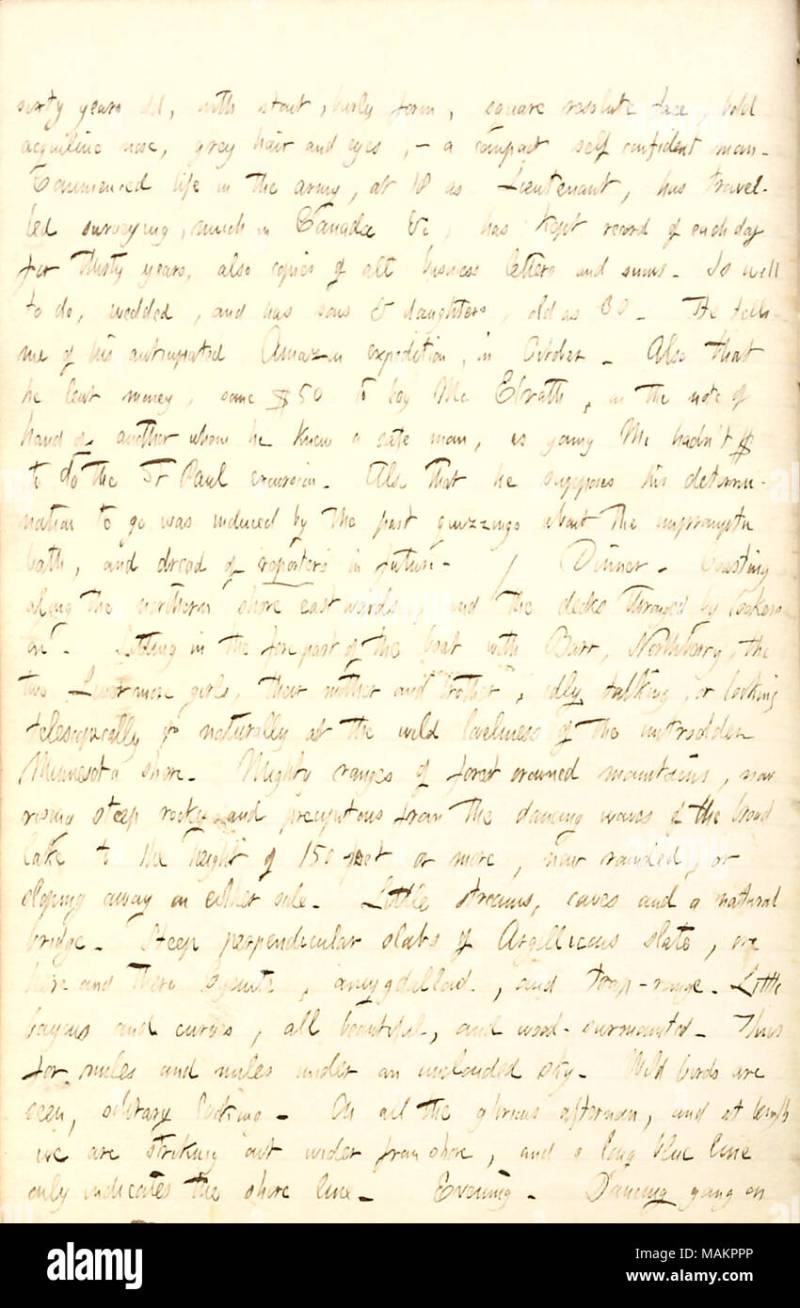 sixty years old, with stout, burly form, square resolute face, bold
acquiline nose, grey hair and eyes, — a compact self confident man.
Commenced life in the army, at 18 as Lieutenant, has travel-
led surveying, much in Canada &c, has kept record of each day
for thirty years, also copies of all business letters and sums. Is well
to do, wedded, and has sons & daughters, old as 30. He tells
me of his anticipated Amazon expedition, in October. Also that
he lent money, some $50 to boy Mc Elrath, on the note of
hand of another whom he knew a safe man, as young Mc hadn't $
to do the St Paul excursion. Also that he supposes his determi-
nation to go was induced by the past quizzings about the impromptu
bath, and dread of reporters in future. / Dinner. Coasting
along the northern shore eastwards, and the decks thronged by lookers
on. Sitting in the fore part of the boat with Barr, Northberry, the
two Livermore girls, their mother and brother, idly talking, or looking
telescopically or naturally at the wild loveliness of the untrodden
Minnesota shore. Mighty ranges of forest crowned mountains, now
rising steep rocky and precipitous from the dancing waves of the broad
lake to the height of 150 feet or more, now rounded, or
sloping away on either side. Little streams, caves and a natural
bridge. Steep perpendicular slabs of Argillicous slate, or
here and there syenite, amygdilloid, and trap-range. Little
bayous and curves, all beautiful, and wood-surmounted. Thus
for miles and miles under an unclouded sky. Wild birds are
seen, solitary looking. On all the glorious afternoon, and at length
we are striking out wider from shore, and a long blue line
only indicates the shore line. Evening. Dancing going on
alamy
Image ID: MAKPPP
www.alamy.com